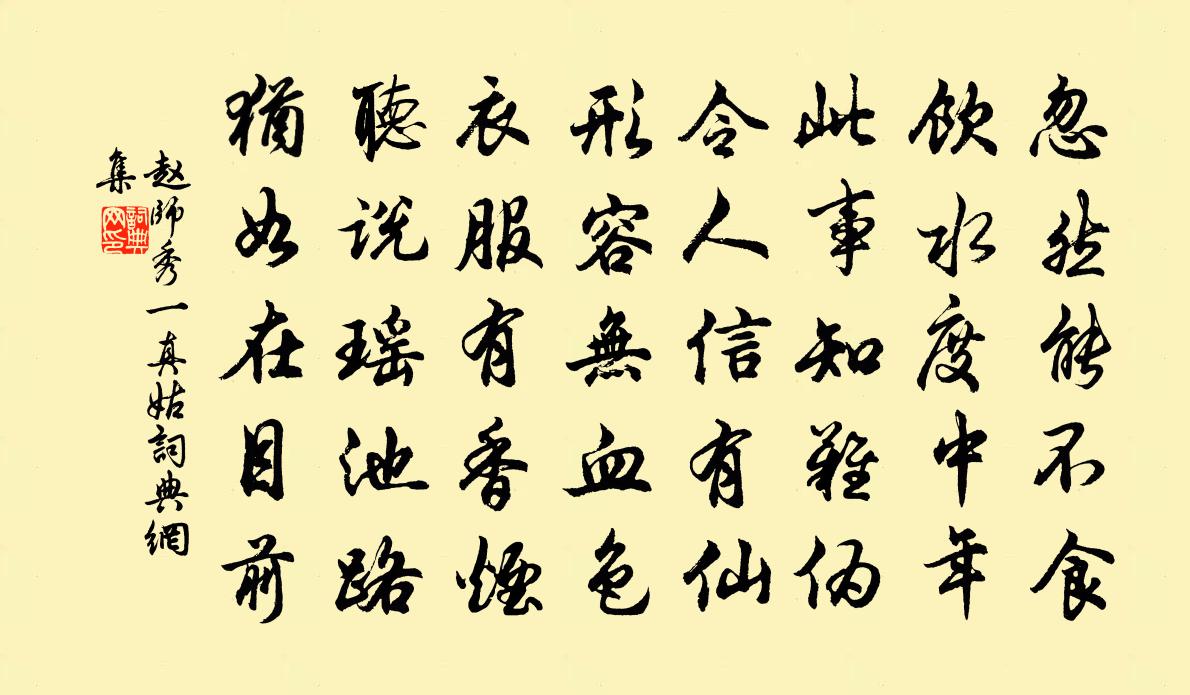 忽然能不食
飲水度中年
此事知難偽
令人信有仙
形容無血色
衣服有香煙
聽说瑶池路
猶如在目前
赵師秀一真姑詞典網
集
詞典
网印